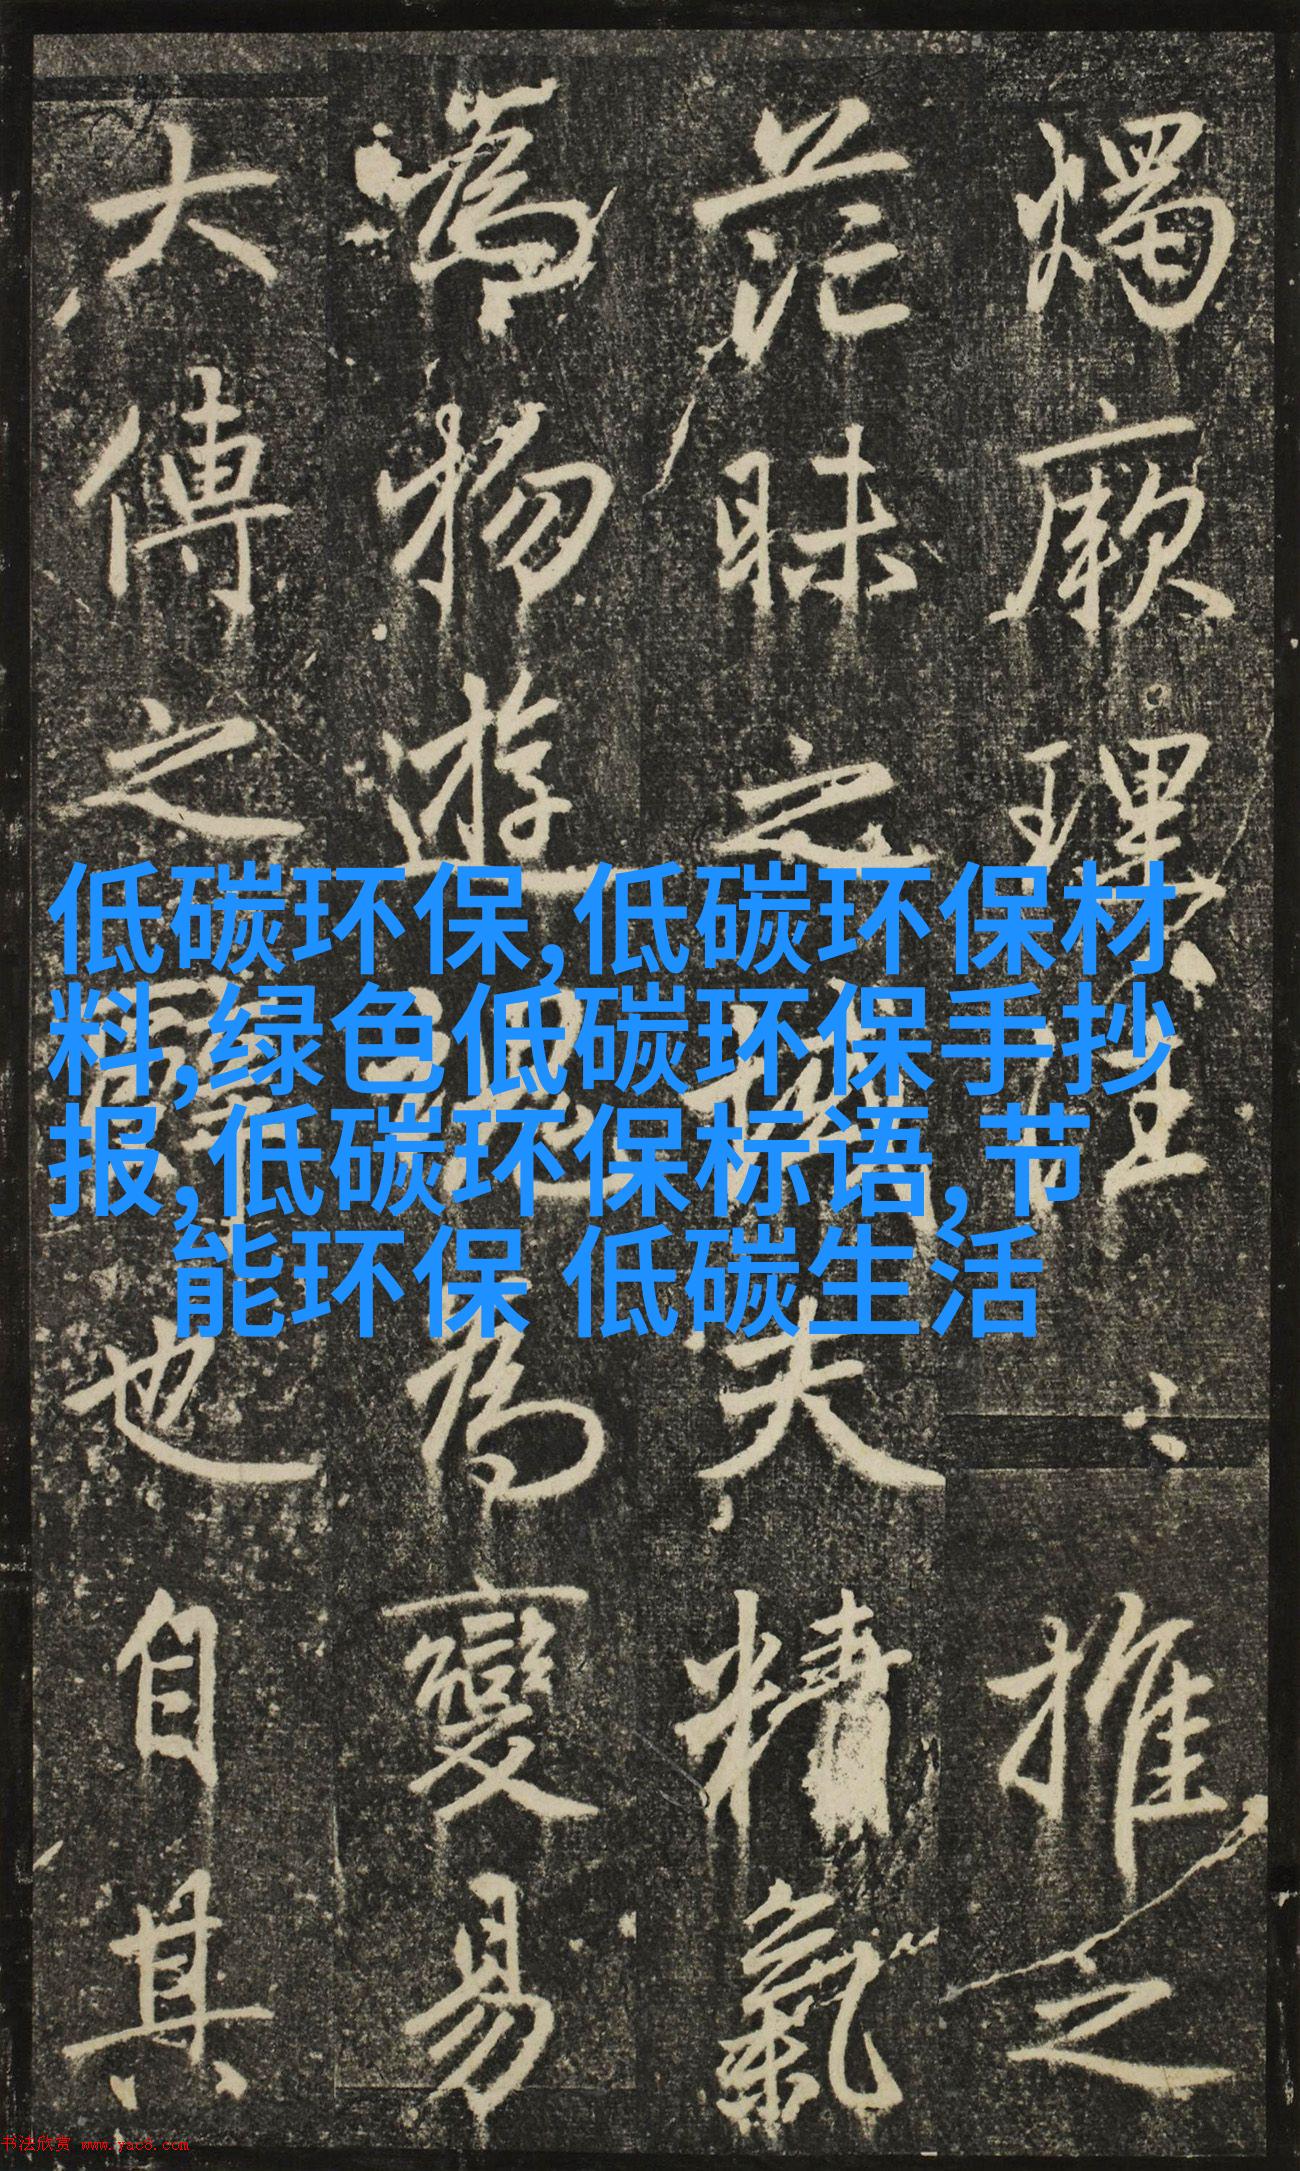 燭厥理推之
茫昧之夫精氣
為物遊魂為變易
大傳之也自其
低碳环保,低碳环保材
料,绿色低碳环保手抄
报,低碳环保标语,节
能环保 低碳生活
书法欣赏 www.yac8.com